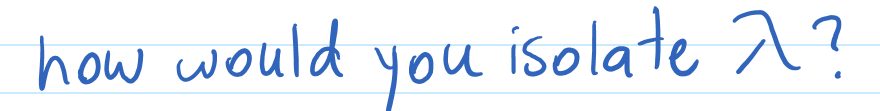 how would you isolate λ?